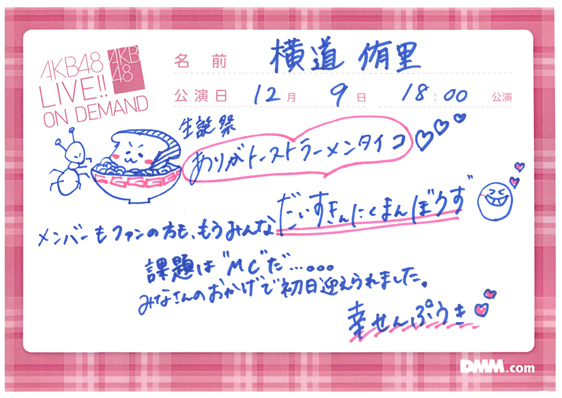 AKB48
LIVE!!
ON DEMAND
AKB
48
名前 横道 侑里
公演日 12月 9日 18:00 公演
生誕祭
ありがトーストラーメンタイコ
メンバーもファンの方も、もうみんな だいすきんにくまんぼうず
課題は"MC"だ...。。。
みなさんのおかげで初日迎えられました。
幸せんぷうき
DMM.com